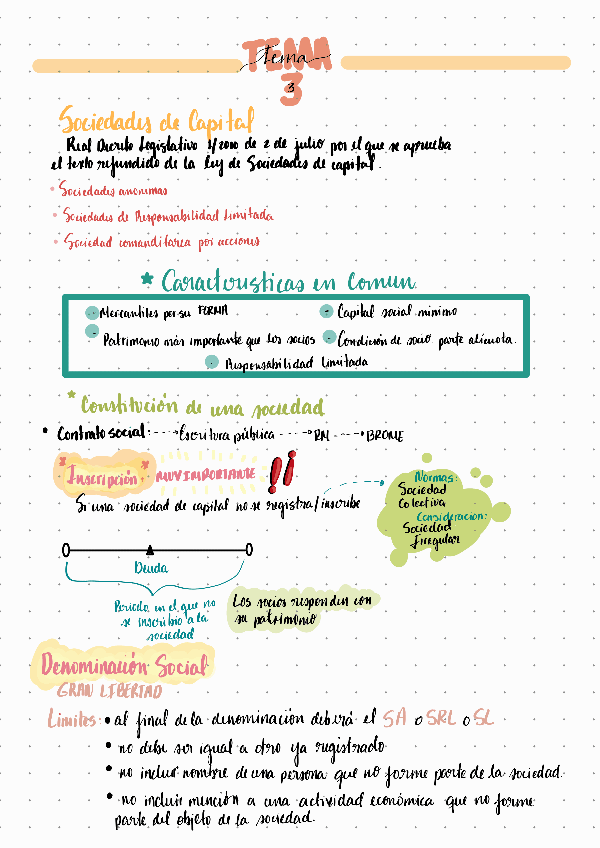 TEMA
Tema
3
3
Sociedades de Capital
Real Decreto Legislativo 1/2010 de 2 de julio por el que se aprueba
el texto refundido de la ley de Sociedades de capital.
• Sociedades anónimas
• Sociedades de Responsabilidad Limitada
• Sociedad comanditarea por acciones
* Características en Comun
Mercantiles por su FORMA
Capital social mínimo
Patrimonio más importante que los socios
Condición de socio parte alicuota.
Responsabilidad Limitada
* Constitución de una sociedad
• Contrato social: ---→ Escritura pública ----→ RM ---→ BORME
* Inscripción * MUY IMPORTANTE !!
Si una sociedad de capital no se registra/inscribe
Normas:
Sociedad
Colectiva
Consideracion:
Sociedad
Irregular
Deuda
Periodo en el que no
se inscribio a la
sociedad
Los socios responden con
su patrimonio
Denominación Social
GRAN LIBERTAD
Límites: • al final de la denominación deberá el SA o SRL o SL
• no debe ser igual a otro ya registrado
• no incluir nombre de una persona que no forme parte de la sociedad.
• no incluir mención a una actividad económica que no forme
parte del objeto de la sociedad.